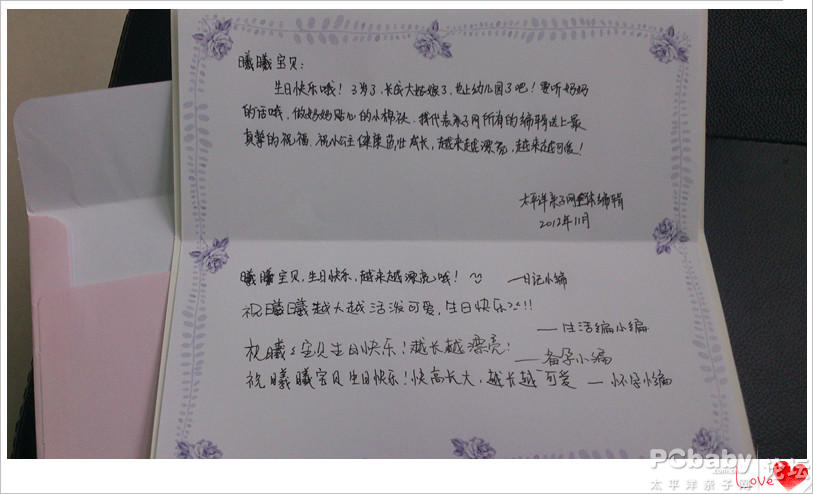 曦曦宝贝：
生日快乐哦！3岁了，长成大姑娘了，也上幼儿园了吧！要听妈妈
的话哦，做妈妈贴心的小棉袄。我代表亲子网所有的编辑送上最
真挚的祝福，祝小公主健康茁壮成长，越来越漂亮，越来越可爱！
太平洋亲子网全体编辑
2012年11月
曦曦宝贝，生日快乐，越来越漂亮哦！ —日记小编
祝曦曦越大越活泼可爱，生日快乐!!
—生活编小编
祝曦曦宝贝生日快乐！越长越漂亮！ —备孕小编
祝曦曦宝贝生日快乐！快高长大，越长越可爱 —怀孕小编
PCbaby 论坛
.com.cn
太平洋亲子网
Love